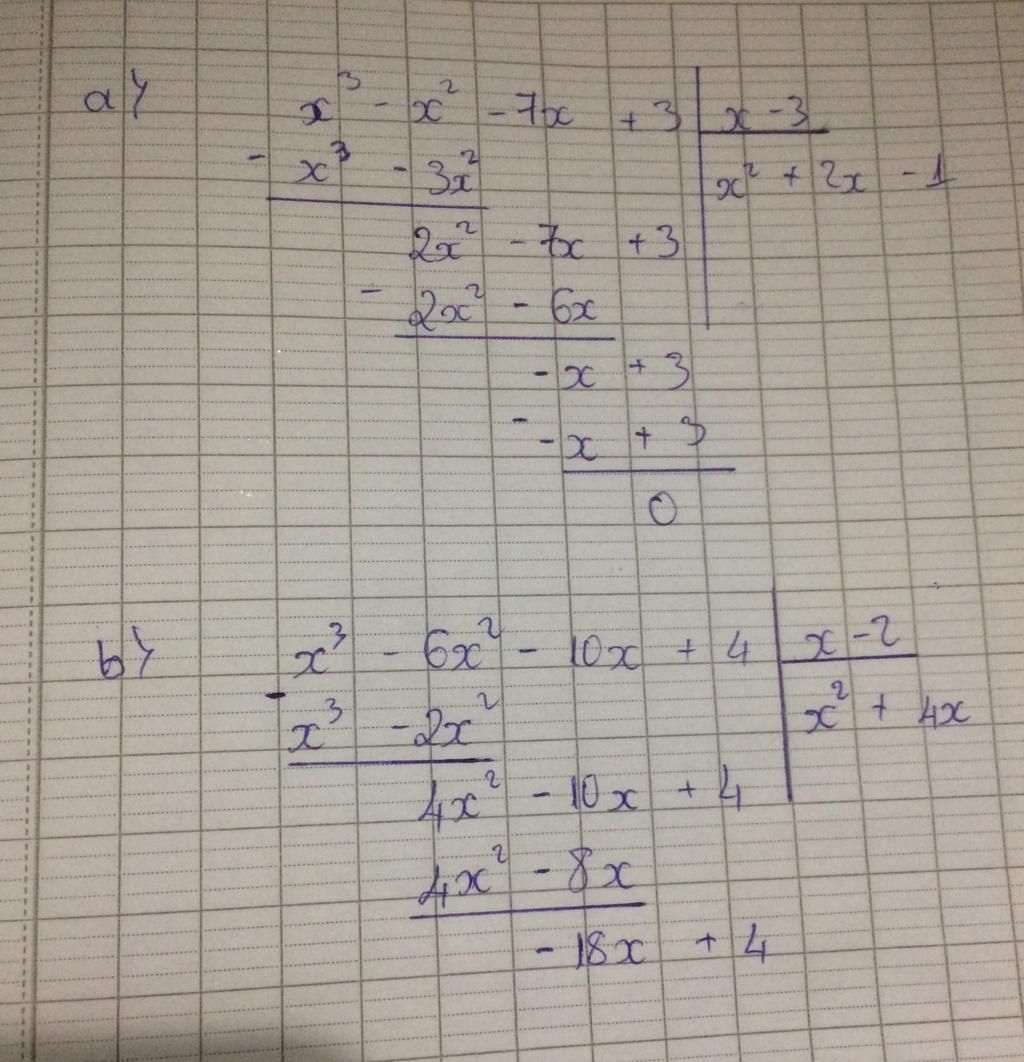 a) x³ - x² - 7x + 3 | x - 3
- x³ - 3x² | x² + 2x - 1
2x² - 7x + 3
- 2x² - 6x
- x + 3
- - x + 3
0
b) x³ - 6x² - 10x + 4 | x - 2
- x³ - 2x² | x² + 4x
4x² - 10x + 4
4x² - 8x
- 18x + 4